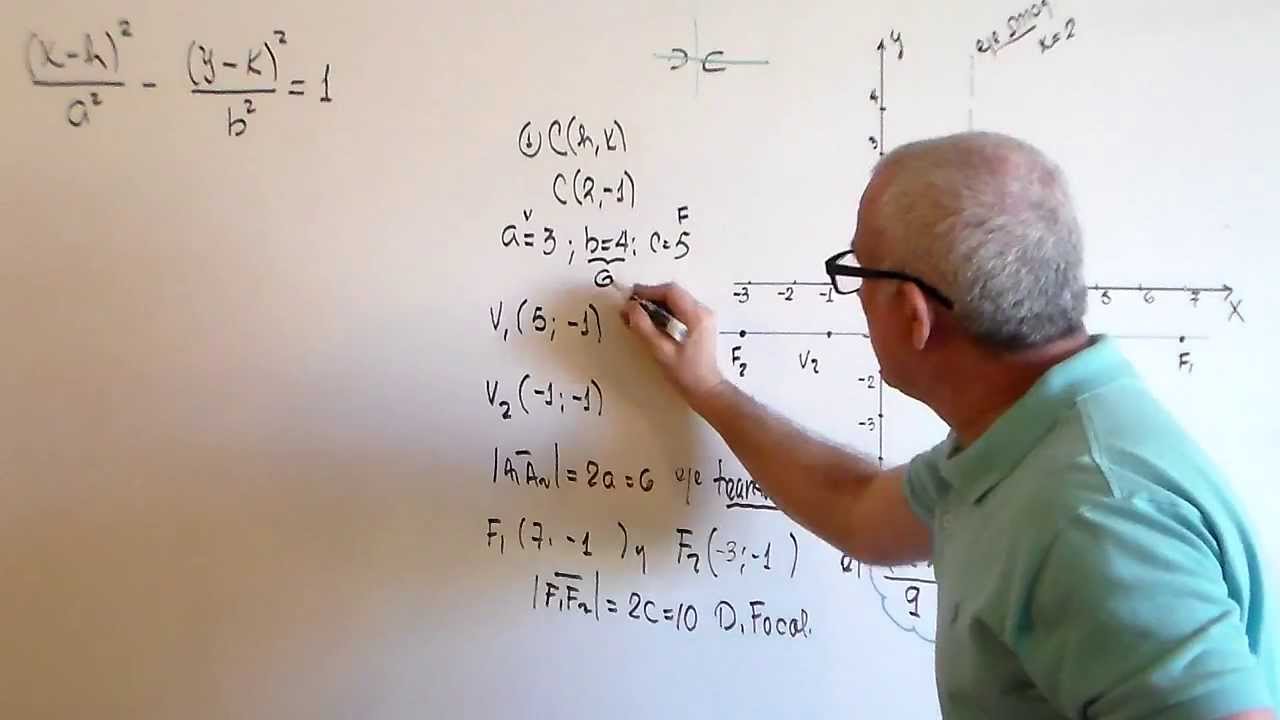 (x-h)² / a² - (y-k)² / b² = 1
① C(h,k)
C(2,-1)
V F
a=3 ; b=4 ; c=5
G
V₁(5; -1)
V₂(-1; -1)
|A₁A₂| = 2a = 6 eje
F₁(7; -1) y F₂(-3; -1)
|F₁F₂| = 2c = 10 D. Focal.
eje
x=2
y
4
3
-3 -2 -1 5 6 7 X
F₂ V₂ F₁
-2
-3
9